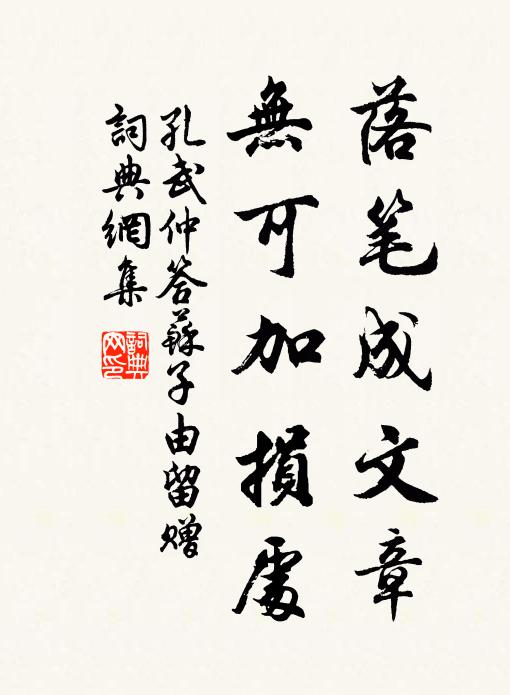 落笔成文章
無可加損處
孔武仲答蘇子由留贈
詞典網集
詞典網印